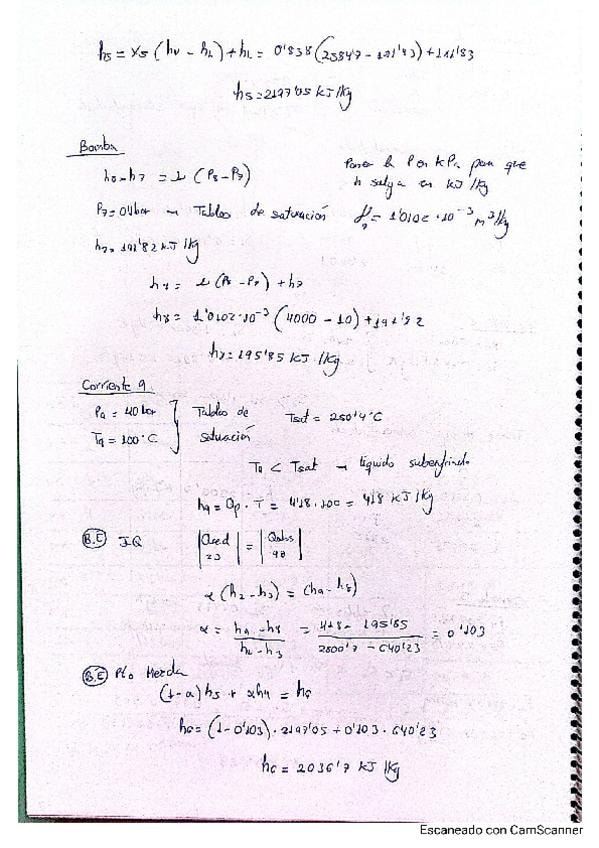 h5 = X5 (hv - hL) + hL = 0'838 (2584'7 - 191'83) + 191'83
h5 = 2197'05 kJ/kg
Bomba
h8 - h7 = ν (P8 - P7)
Pasar la P en kPa para que
h salga en kJ/kg
P7 = 0'1 bar → Tablas de saturación ν7 = 1'0102 · 10⁻³ m³/kg
h7 = 191'82 kJ/kg
h8 = ν (P8 - P7) + h7
h8 = 1'0102·10⁻³ (4000 - 10) + 191'82
h8 = 195'85 kJ/kg
Corriente 9
P9 = 40 bar
T9 = 100 °C
Tablas de
saturación
Tsat = 250'4 °C
T9 < Tsat → líquido subenfriado
h9 = Cp · T = 4'18 · 100 = 418 kJ/kg
B.E IQ |Qced 23| = |Qabs 98|
α (h2 - h3) = (h9 - h8)
α = h9 - h8 / h2 - h3 = 418 - 195'85 / 2800'7 - 640'23 = 0'103
B.E Pto Mezcla
(1-α) h5 + αh4 = h6
h6 = (1 - 0'103) · 2197'05 + 0'103 · 640'23
h6 = 2036'7 kJ/kg
Escaneado con CamScanner